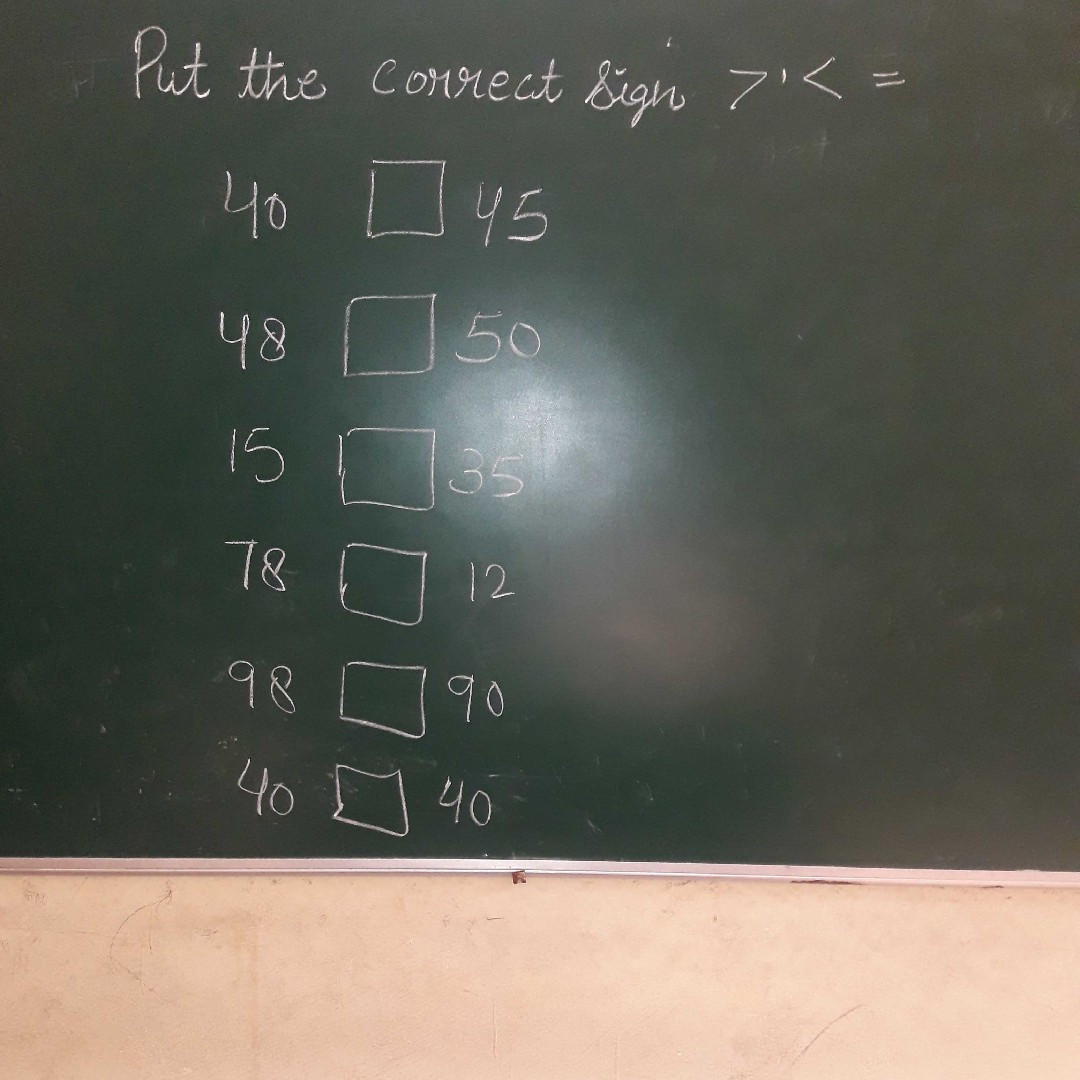 Put the correct sign >'< =
40 □ 45
48 □ 50
15 □ 35
78 □ 12
98 □ 90
40 □ 40